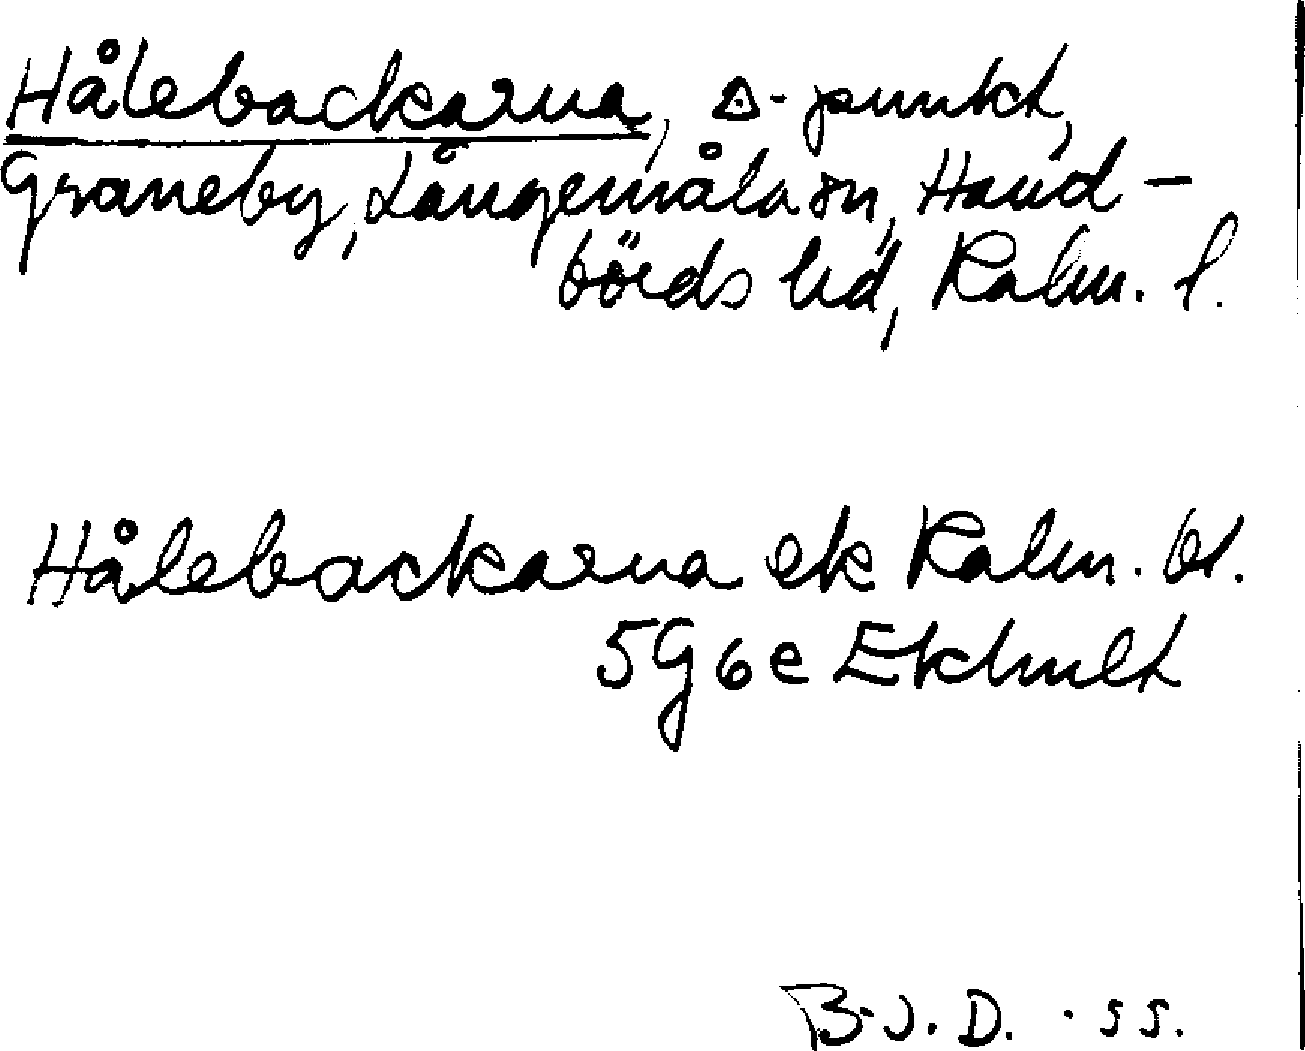 Hålebackarna, △-punkt,
Graneby, Långemåla sn, Hand-
börds hd, Kalm. l.
Hålebackarna ek Kalm. bl.
5G6e Ekhult
B.J.D. . SS.